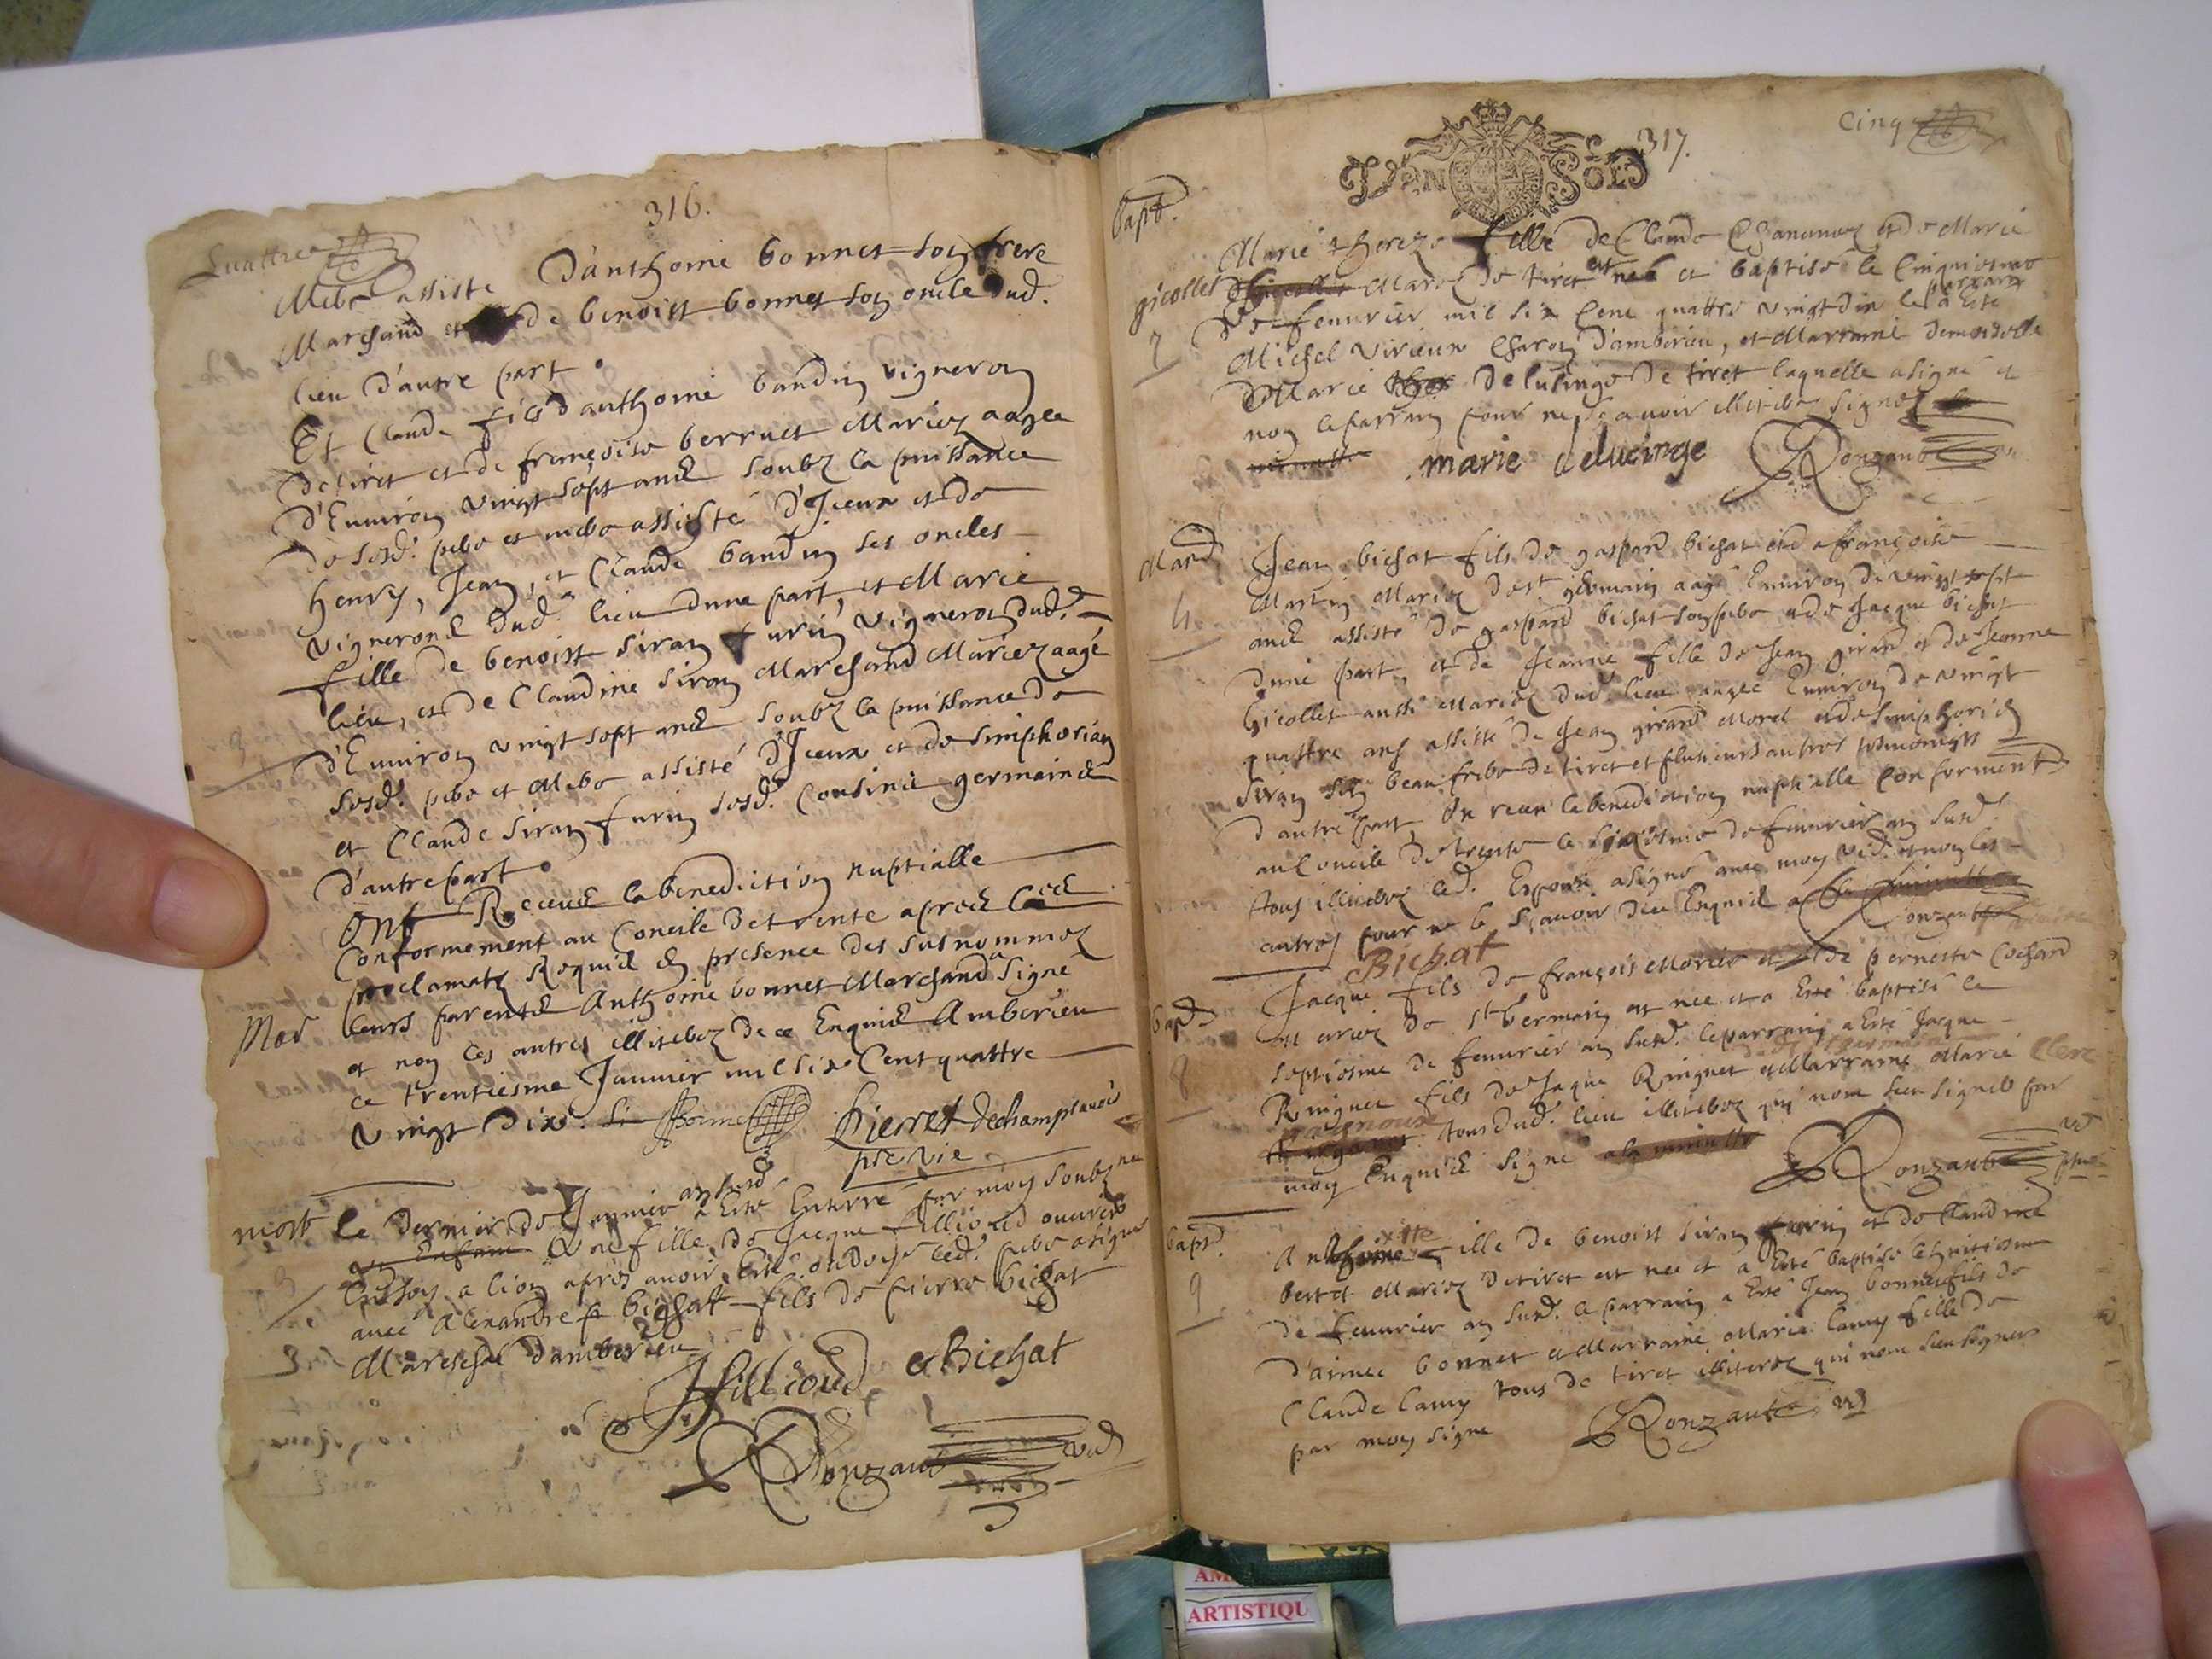 316.
Quattre
Mere assiste D'anthoine bonnet son frere
Marchand et de benoist bonnet son oncle dud.
lieu d'autre part
Et Claude fils d'anthoine baudin vigneron
de tiret et de françoise berruet Mariez aagee
d'Environ vingt sept ans soubz la puissance
de sesd. pere et mere assisté d'Iceux et de
henry, Jean, et Claude baudin ses oncles
vignerons dud. lieu dune part, et Marie
fille de benoist siran furin vigneron dud.
lieu, et de Claudine siran Marchand Mariez aagé
d'Environ vingt sept ans soubz la puissance de
sesd. pere et Mere assisté d'Iceux et de simphorian
et Claude siran furin sesd. Cousins germains
d'autre part
Ont Receus la benediction nuptialle
Conformement au Concile de trente apres les
proclamats Requis En presence des susnommez
Mar leurs parents Anthoine bonnet Marchand a signé
et non les autres illiterez de ce Enquis Amberieu
ce trentiesme Janvier mil six Cent quattre
vingt Dix.
Bonnet Pierret dechamplavois
ptre vic
an susd
mort le dernier de Janvier a Esté Enterré par moy soubz ne
un Enfant Une fille de Jacque filliod ouvrier
en soy a lion apres avoir Esté ondoyé led. pere a signé
avec Alexandre bichatt fils de pierre bichat
Mareschal d'amberieu
J fillioud A Bichat
Ronzault vic
317.
Cinq
UN SOL
bapt.
Marie thereze fille de Claude Chananoz et de Marie
gicollet Mariez de tiret est nee et baptise le Cinquiesme
7 De fevurier mil six Cent quattre vingt dix le parrain a Esté
Michel virieux Charon d'amberieu, et Marraine demoiselle
Marie de lusinge de tiret laquelle a signé et
non le parrain pour ne sçavoir illitere signez
marie delucinge Ronzault
Mard
4 Jean bichat fils de gaspard bichat et de françoise
Martin Mariez de st. germain aagé Environ de vingt sept
ans assisté de gaspard bichat son pere et de Jacque bichat
d'une part, et de Jeanne fille de Jean girard et de Jeanne
gicollet aussi Mariez dud. lieu aagee Environ de vingt
quattre ans assisté de Jean girard Morel et de simphorien
siran son beau frere de tiret et plusieurs autres tesmoings
d'autre part, On receu la benediction nuptialle Conforment
au Concile de trente le sixiesme de fevurier an susd.
tous illiterez led. Espoux a signé avec moy vic. et non les
autres pour ne le sçavoir dece Enquis
Bichat Ronzault
bapt.
8 Jacque fils de françois Morier et de pernette Cochard
Mariez de st Germain est nee et a Esté baptisé le
septiesme de fevurier an susd. le parrain a Esté Jacque
Ringuet fils de Jaque Ringuet et Marraine Marie Clerc
tous dud. lieu illiterez qui nont sceu signer par
moy Enquis signé
Ronzault vic
bapt.
9 Anthoinette fille de benoist siran furin et de Claudine
bertet Mariez de tiret est nee et a Esté baptisé le huitiesme
de fevurier an susd. le parrain a Esté Jean bonnet fils de
d'aimee bonnet et Marraine Marie lamy fille de
Claude lamy tous de tiret illiterez qui nont sceu signer
par moy signe Ronzault vic
AM
ARTISTIQU